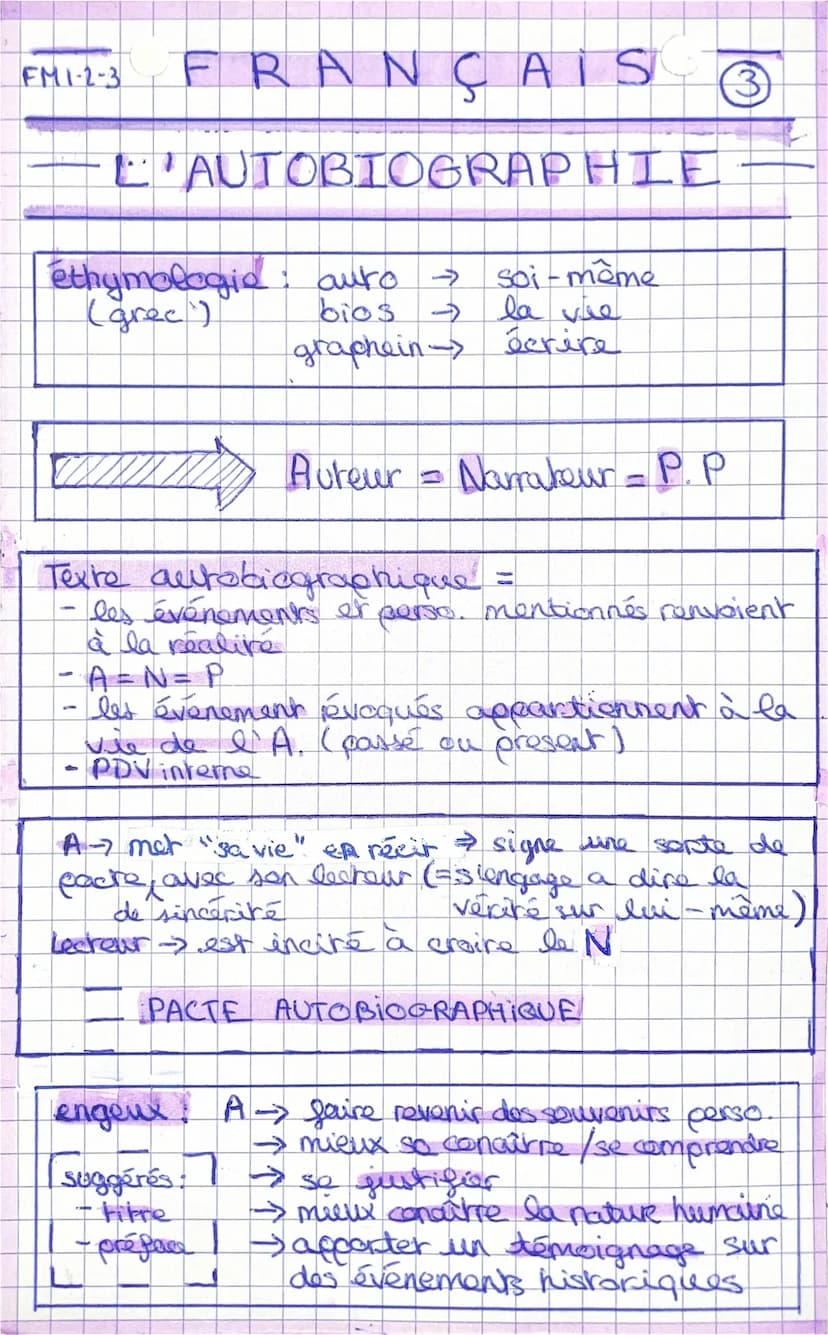 FM1-2-3 FRANÇAIS 3
L'AUTOBIOGRAPHIE
éthymologie : auto → soi-même
(grec) bios → la vie
graphein → écrire
Auteur = Narrateur = P.P
Texte autobiographique =
- les événements et perso. mentionnés renvoient
à la réalité
- A = N = P
- les événement évoqués appartiennent à la
vie de l'A. (passé ou présent)
- PDV interne
A → met "sa vie" en récit ⇒ signe une sorte de
pacte, avec son lecteur (= s'engage a dire la
de sincérité vérité sur lui-même)
Lecteur → est incité à croire le N
= PACTE AUTOBIOGRAPHIQUE
engeux : A → faire revenir des souvenirs perso.
→ mieux se conaître / se comprendre
suggérés : → se justifier
- titre → mieux conaître la nature humaine
- préface → apporter un témoignage sur
des événements historiques